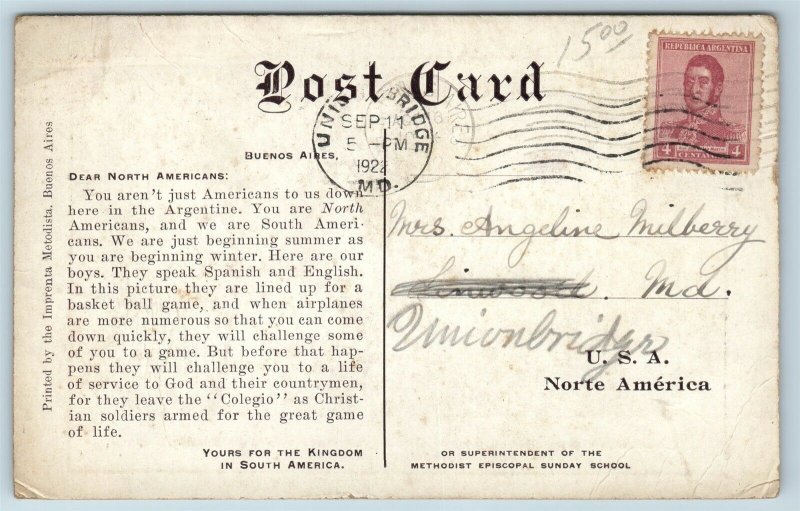 15 00
Post Card
REPUBLICA ARGENTINA
4 CENTAVOS 4
UNION BRIDGE
SEP 11
5 - PM
1922
MD.
Printed by the Imprenta Metodista, Buenos Aires
BUENOS AIRES,
DEAR NORTH AMERICANS:
You aren't just Americans to us down
here in the Argentine. You are North
Americans, and we are South Ameri-
cans. We are just beginning summer as
you are beginning winter. Here are our
boys. They speak Spanish and English.
In this picture they are lined up for a
basket ball game, and when airplanes
are more numerous so that you can come
down quickly, they will challenge some
of you to a game. But before that hap-
pens they will challenge you to a life
of service to God and their countrymen,
for they leave the "Colegio" as Christ-
ian soldiers armed for the great game
of life.
YOURS FOR THE KINGDOM
IN SOUTH AMERICA.
Mrs. Angeline Milberry
Linwood. Md.
Unionbridge
U. S. A.
Norte América
OR SUPERINTENDENT OF THE
METHODIST EPISCOPAL SUNDAY SCHOOL